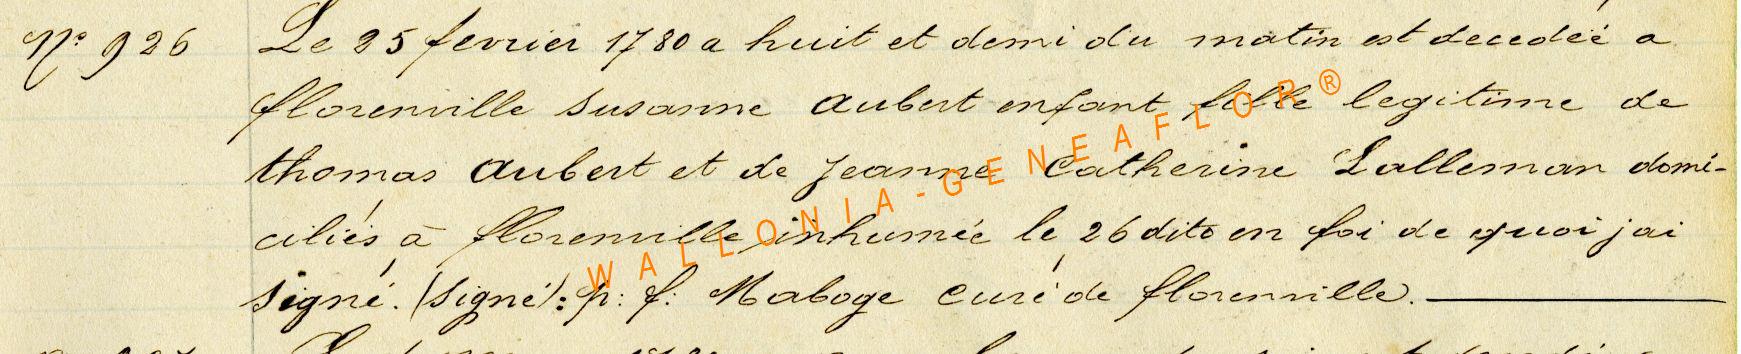 N° 926 Le 25 fevrier 1780 a huit et demi du matin est decedéé a
florenville susanne aubert enfant fille legitime de
thomas aubert et de jeanne Catherine Lalleman domi-
ciliés à florenville inhumée le 26 dito en foi de quoi jai
signé. (signé): p: f: Maboge curé de florenville.
WALLONIA-GENEAFLOR®